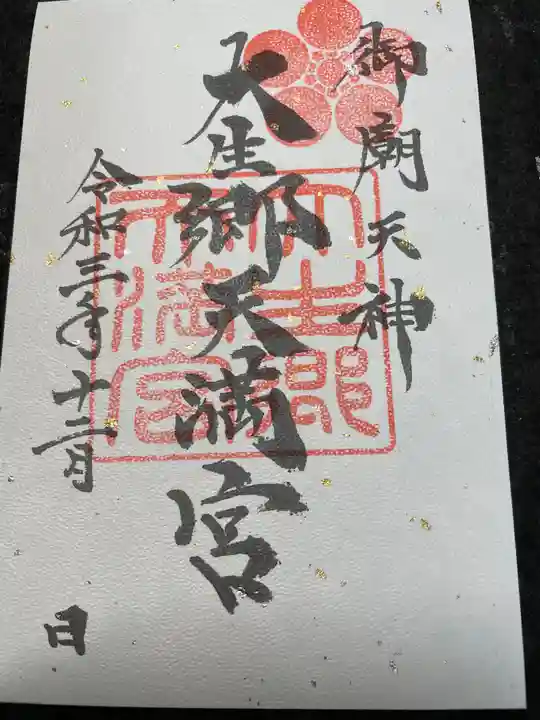 御廟天神
大生郷天満宮
令和三年十二月
日